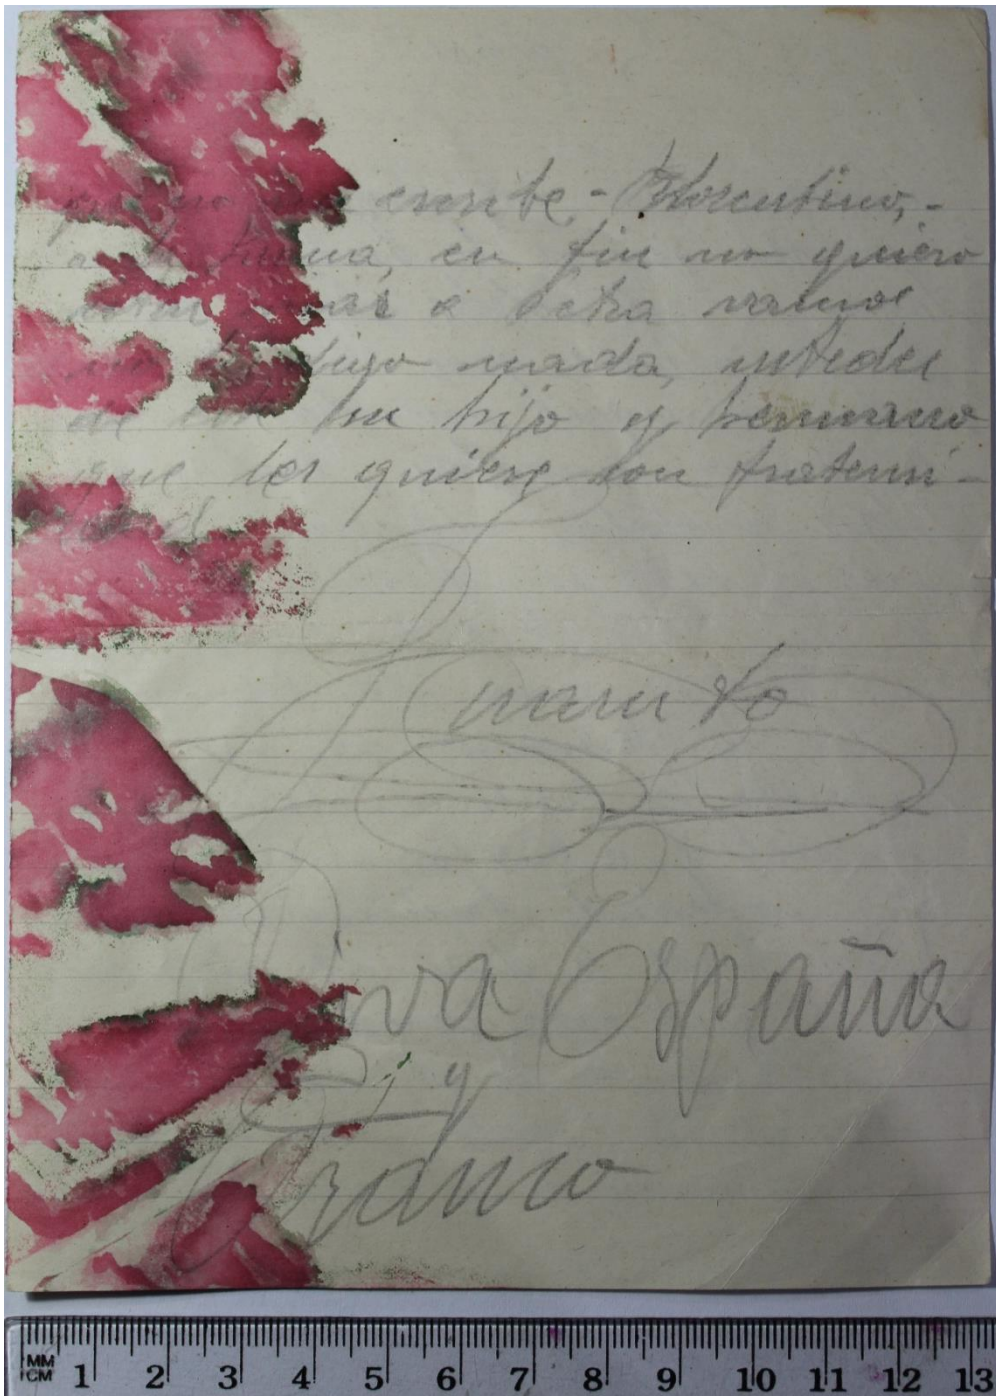 que no me escribe - Florentino, -
a la buena, en fin no quiero
mas a otra vamos
digo nada, ustedes
de este su hijo y hermano
que les quiere con fraterni-
dad
Juanito
Viva España
y
Franco
MM
CM 1 2 3 4 5 6 7 8 9 10 11 12 13